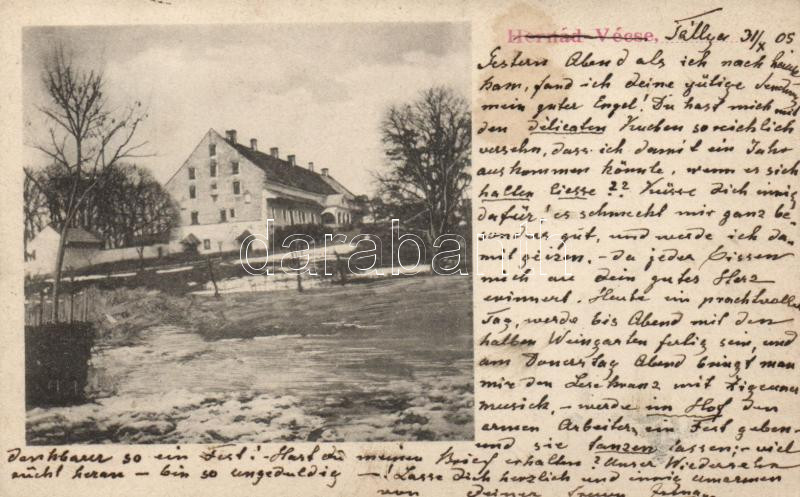 Hernád-Vécse, Tállya 31/X 05
Gestern Abend als ich nach hause
kam, fand ich deine gütige Sendung
mein guter Engel! Du hast mich mit
den delicaten Kuchen so reichlich
versehn, dass ich damit ein Jahr
auskommen könnte, wenn es sich
halten liesse?? Küsse Dich innig
dafür! es schmeckt mir ganz be-
sonders gut, und werde ich da-
mit geizen. - Da jeder Bissen
mich an dein gutes Herz
erinnert. Heute ein prachtvoller
Tag, werde bis Abend mit den
halben Weingarten fertig sein, und
am Donerstag Abend bringt man
mir den Lesekranz mit Zigeuner
musick, - werde im Hof den
armen Arbeiter ein Fest geben -
und sie tanzen lassen; - viel
denkbarer so ein Fest! - Hast du meinen Brief erhalten? Unser Wiedersehn
rückt heran - bin so ungeduldig - ! Lasse Dich herzlich und innig umarmen
von Deiner
darabanth.com